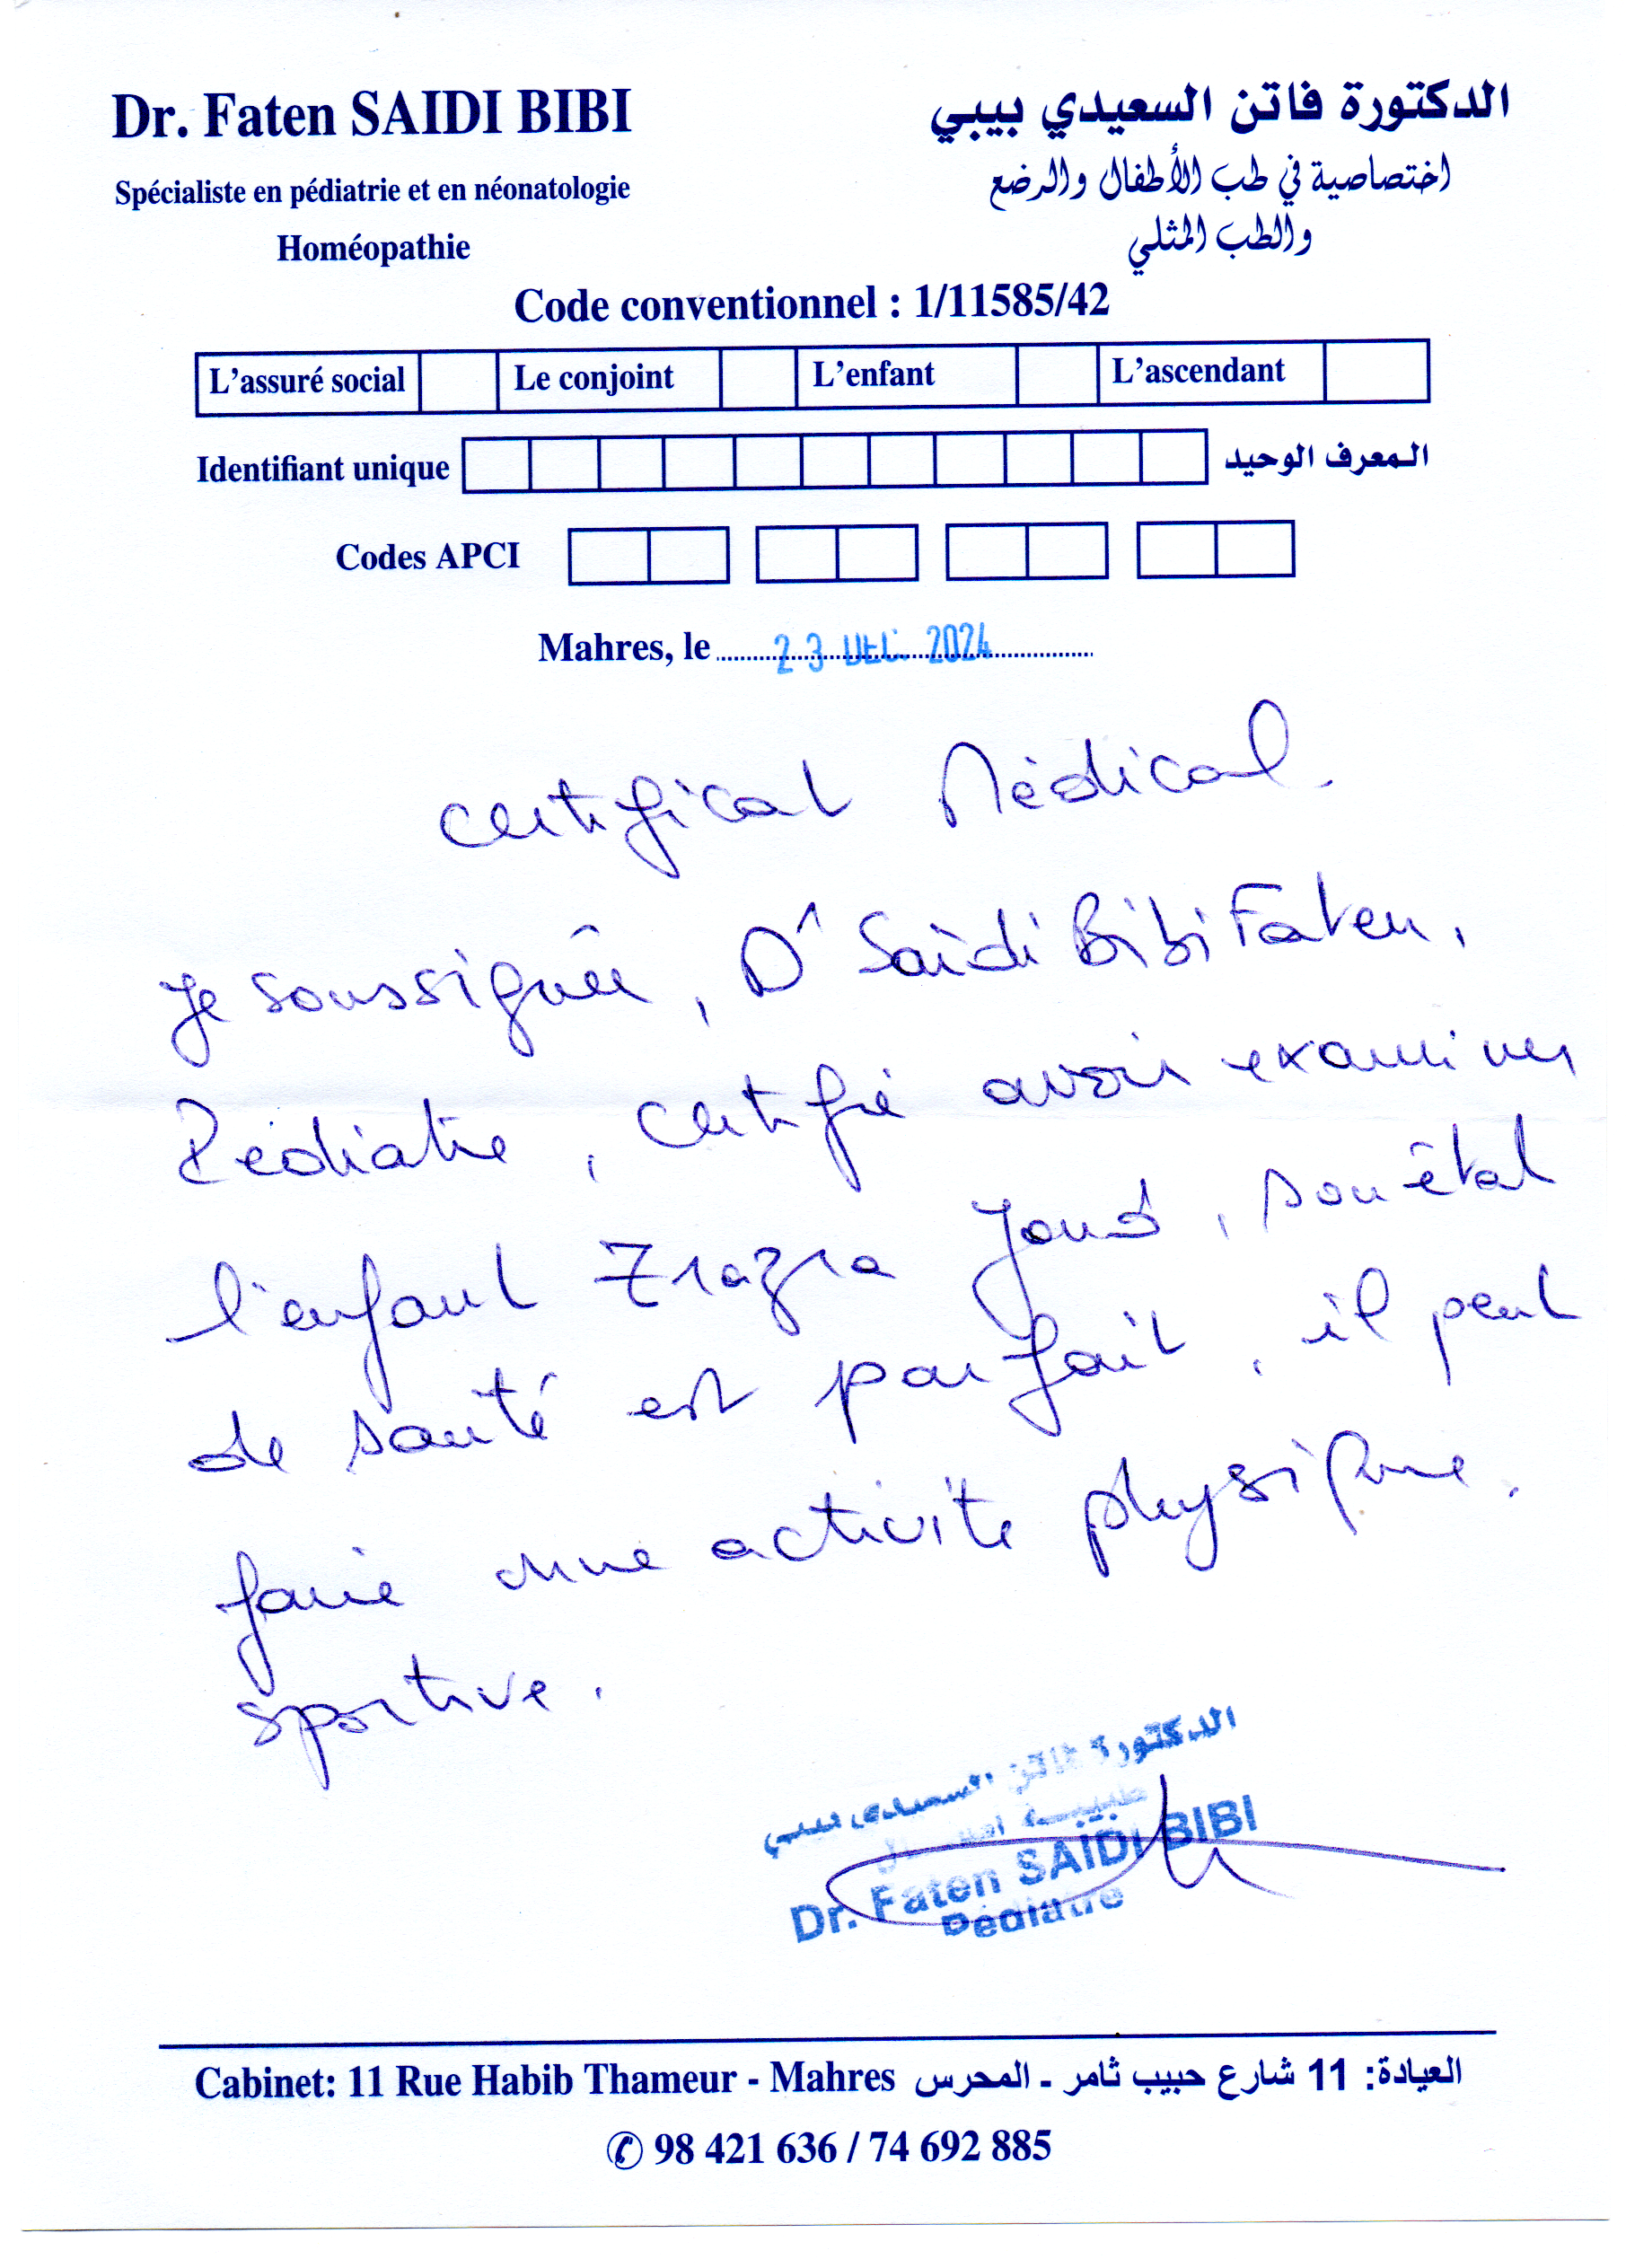 Dr. Faten SAIDI BIBI
Spécialiste en pédiatrie et en néonatologie
Homéopathie
الدكتورة فاتن السعيدي بيبي
اختصاصية في طب الأطفال والرضع
والطب المثلي
Code conventionnel : 1/11585/42
L'assuré social Le conjoint L'enfant L'ascendant
Identifiant unique المعرف الوحيد
Codes APCI
Mahres, le 23 DEC. 2024
Certificat Médical.
Je soussignée, Dr Saïdi Bibi Faten,
Pédiatre, certifie avoir examiner
l'enfant Zrazra, son état
de santé est parfait, il peut
faire une activité physique.
sportive.
الدكتورة فاتن السعيدي بيبي
طبيبة
Dr. Faten SAIDI BIBI
Pédiatre
Cabinet: 11 Rue Habib Thameur - Mahres العيادة: 11 شارع حبيب ثامر - المحرس
✆ 98 421 636 / 74 692 885